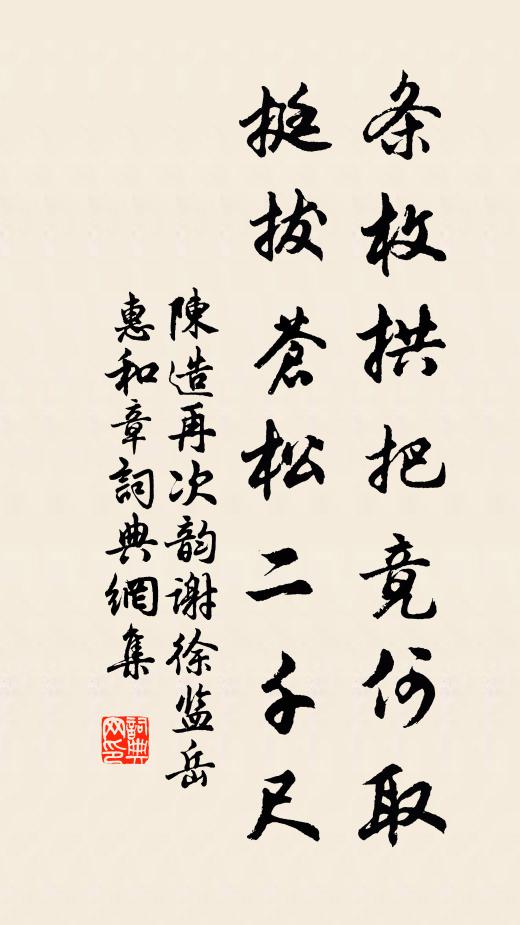 条枚拱把竟何取
挺拔蒼松二千尺
陳造再次韵谢徐监岳
惠和章詞典網集
詞典网印